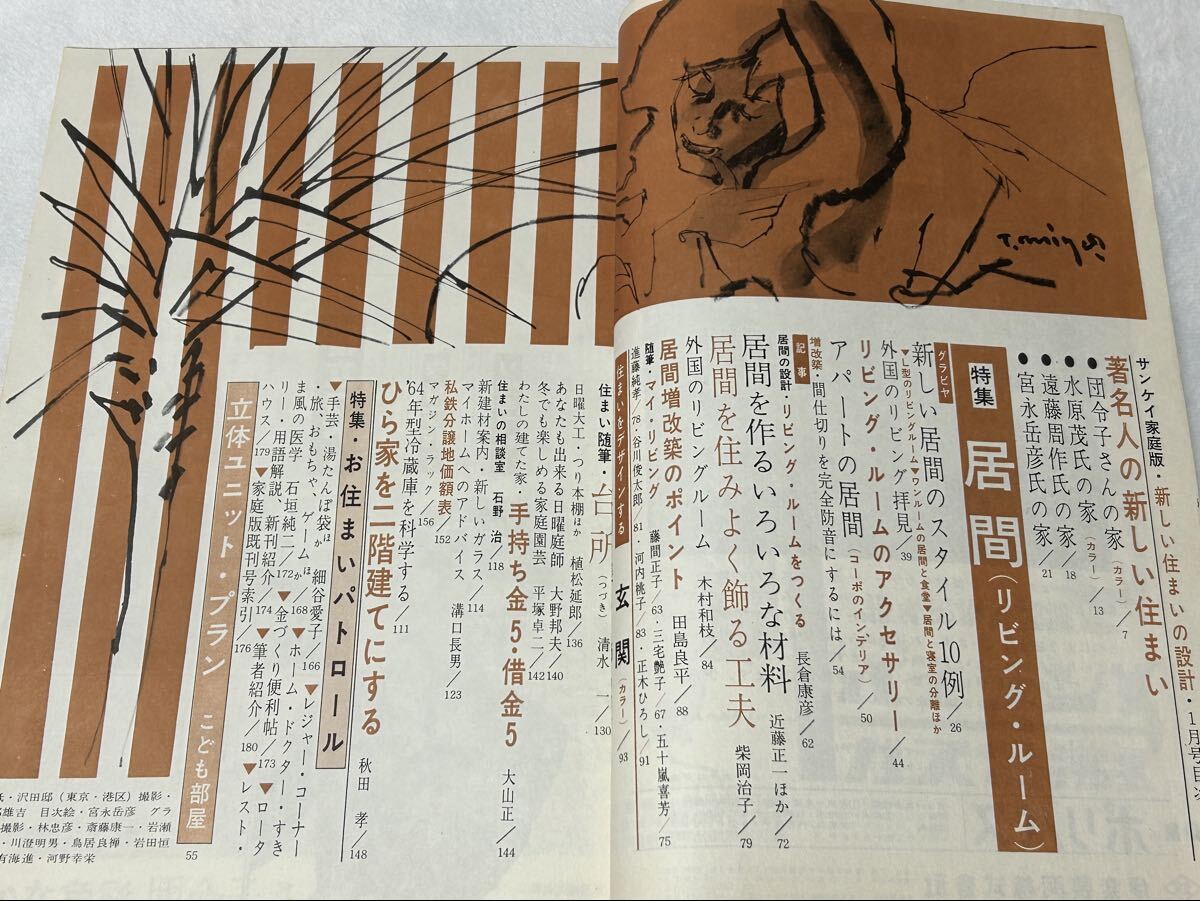 サンケイ家庭版・新しい住まいの設計・1月号目次
著名人の新しい住まい
●団令子さんの家(カラー)/7
●水原茂氏の家(カラー)/13
●遠藤周作氏の家/18
●宮永岳彦氏の家/21
特集 居間(リビング・ルーム)
グラビヤ
新しい居間のスタイル10例/26
▼L型のリビングルーム▼ワンルームの居間と食堂▼居間と寝室の分離ほか
外国のリビング拝見/39
リビング・ルームのアクセサリー/44
アパートの居間(コーポのインテリア)/50
増改築・間仕切りを完全防音にするには/54
記事
居間の設計・リビング・ルームをつくる 長倉康彦/62
居間を作るいろいろな材料 近藤正一ほか/72
居間を住みよく飾る工夫 柴岡治子/79
外国のリビングルーム 木村和枝/84
居間増改築のポイント 田島良平/88
随筆・マイ・リビング 藤間正子/63・三宅艶子/67・五十嵐喜芳/75
進藤純孝/78・谷川俊太郎/81・河内桃子/83・正木ひろし/91
住まいをデザインする 玄関(カラー)/93
住まい随筆・台所(つづき) 清水一/130
日曜大工・つり本棚ほか 植松延郎/136
あなたも出来る日曜庭師 大野邦夫/140
冬でも楽しめる家庭園芸 平塚卓二/142
わたしの建てた家・手持ち金5・借金5 大山正/144
住まいの相談室 石野治/118
新建材案内・新しいガラス/114
マイホームへのアドバイス 溝口長男/123
私鉄分譲地価額表/152
マガジン・ラック/156
'64年型冷蔵庫を科学する/111
ひら家を二階建てにする 秋田孝/148
特集・お住まいパトロール
▼手芸・湯たんぽ袋ほか 細谷愛子/166▼レジャー・コーナー
・旅、おもちゃ、ゲームほか/168▼ホーム・ドクター・すき
ま風の医学 石垣純二/172▼金づくり便利帖/173▼ロータ
リー・用語解説、新刊紹介/174▼筆者紹介/180▼レスト・
ハウス/179▼家庭版既刊号索引/176
立体ユニット・プラン こども部屋
55
・沢田邸(東京・港区)撮影・
雄吉 目次絵・宮永岳彦 グラ
撮影・林忠彦・斎藤康一・岩瀬
・川澄明男・鳥居良禅・岩田恒
有海進・河野幸栄